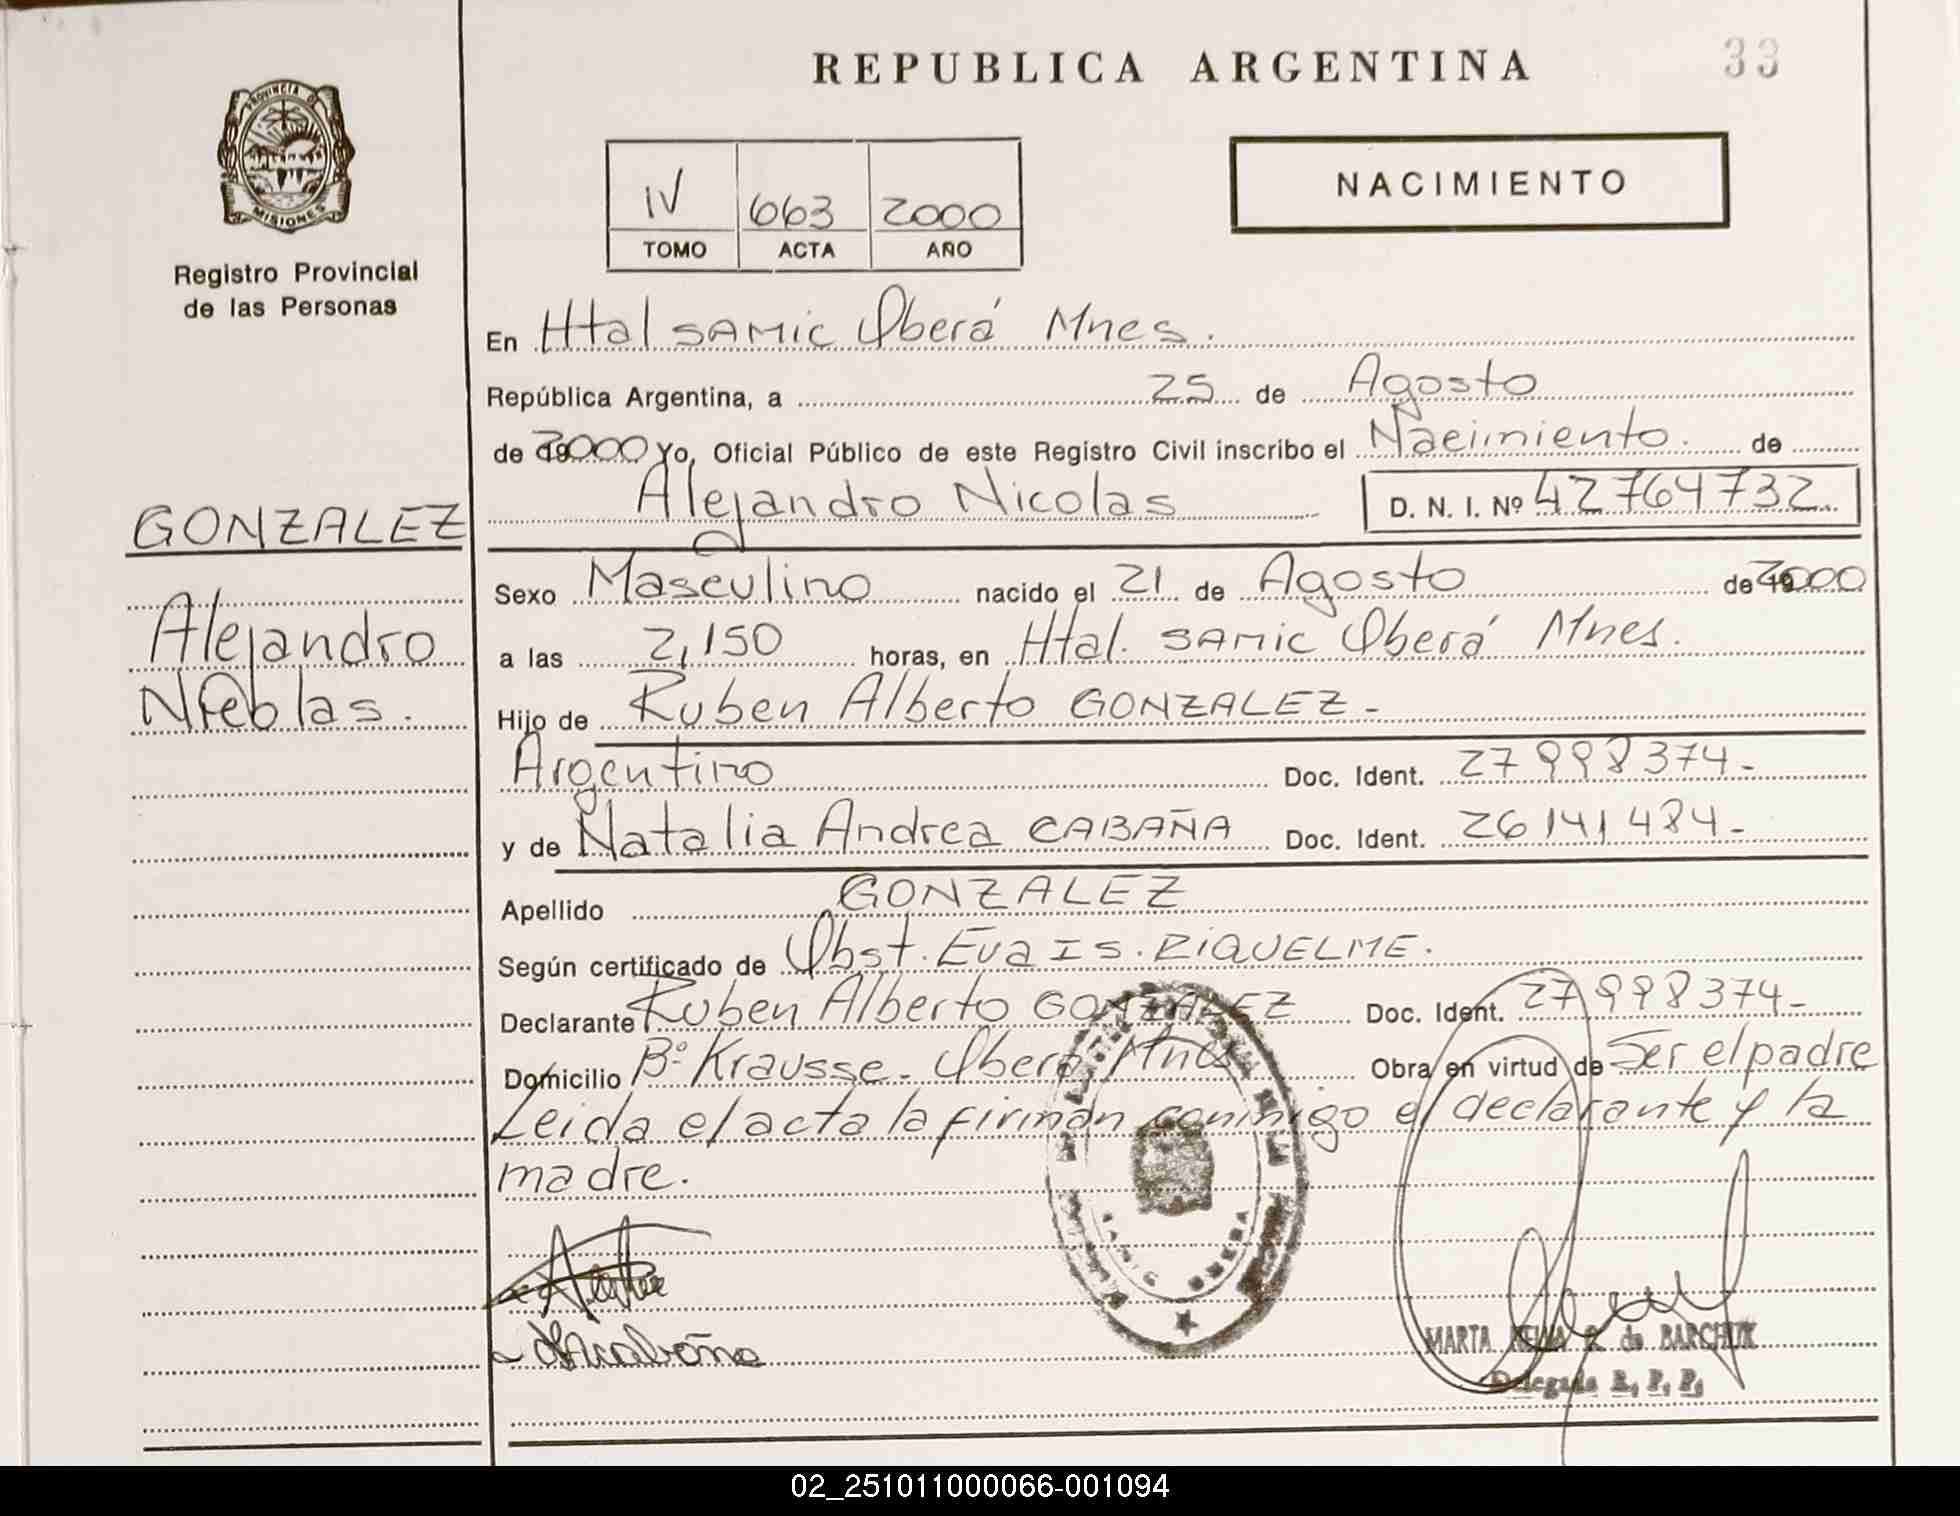 REPUBLICA ARGENTINA
33
PROVINCIA DE
MISIONES
Registro Provincial
de las Personas
IV 663 2000
TOMO ACTA AÑO
NACIMIENTO
En Htal SAMIC Oberá Mnes.
República Argentina, a 25 de Agosto
de 2000 Yo, Oficial Público de este Registro Civil inscribo el Nacimiento. de
Alejandro Nicolas D. N. I. Nº 42764732
GONZALEZ
Alejandro
Nicolas.
Sexo Masculino nacido el 21 de Agosto de 2000
a las 2,150 horas, en Htal. SAMIC Oberá Mnes.
Hijo de Ruben Alberto GONZALEZ-
Argentino Doc. Ident. 27998374-
y de Natalia Andrea CABAÑA Doc. Ident. 26141484-
Apellido GONZALEZ
Según certificado de Obst. Eva Is. RIQUELME.
Declarante Ruben Alberto GONZALEZ Doc. Ident. 27998374-
Domicilio Bº Krausse- Oberá, Mnes Obra en virtud de Ser el padre
Leida el acta la firman conmigo el declarante y la
madre.
MARTA de BARCHUK
Delegada R. P. P.
02_251011000066-001094